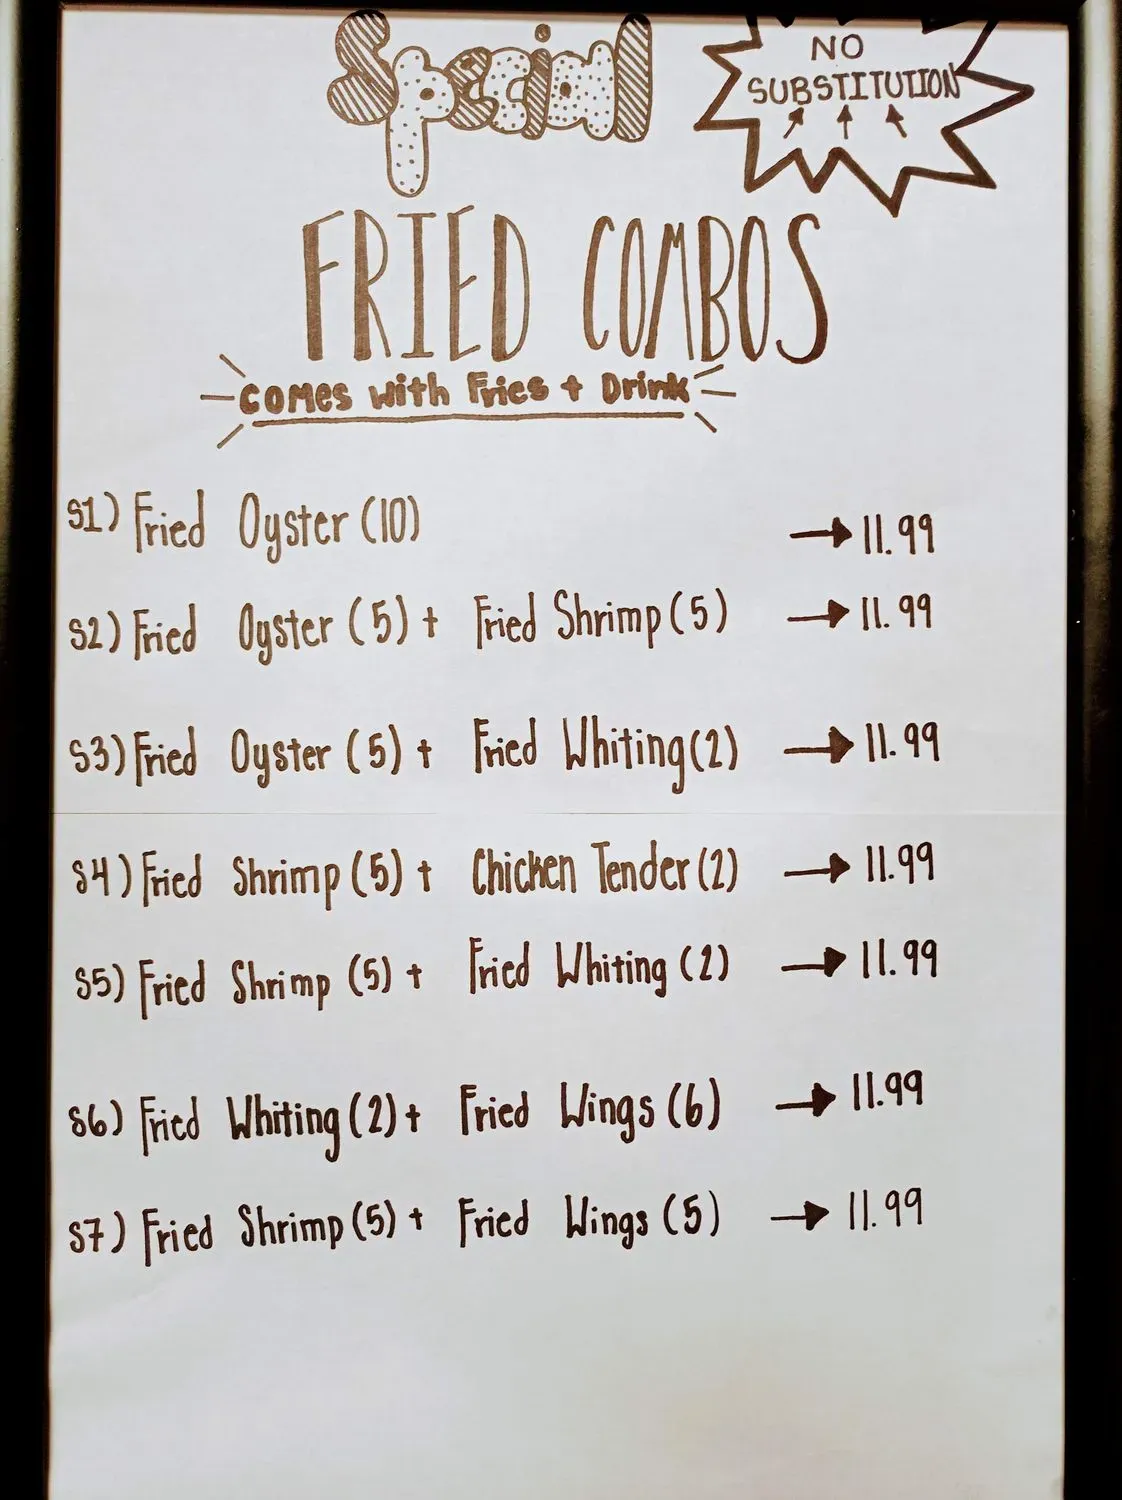 Special
NO
SUBSTITUTION
FRIED COMBOS
comes with Fries + Drink
S1) Fried Oyster (10) → 11.99
S2) Fried Oyster (5) + Fried Shrimp (5) → 11.99
S3) Fried Oyster (5) + Fried Whiting (2) → 11.99
S4) Fried Shrimp (5) + Chicken Tender (2) → 11.99
S5) Fried Shrimp (5) + Fried Whiting (2) → 11.99
S6) Fried Whiting (2) + Fried Wings (6) → 11.99
S7) Fried Shrimp (5) + Fried Wings (5) → 11.99